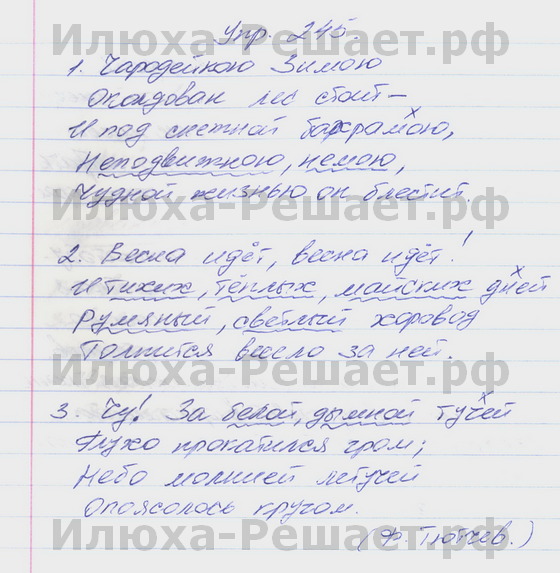 Упр. 245.
1. Чародейкою Зимою
Околдован лес стоит –
И под снежной бахрамою,
Неподвижною, немою,
Чудной жизнью он блестит.
2. Весна идёт, весна идёт!
И тихих, тёплых, майских дней
Румяный, светлый хоровод
Толпится весело за ней.
3. Чу! За белой, дымной тучей
Глухо прокатился гром;
Небо молнией летучей
Опоясолось кругом.
(Ф. Тютчев.)
Илюха-Решает.рф
Илюха-Решает.рф
Илюха-Решает.рф
Илюха-Решает.рф
Илюха-Решает.рф
Илюха-Решает.рф